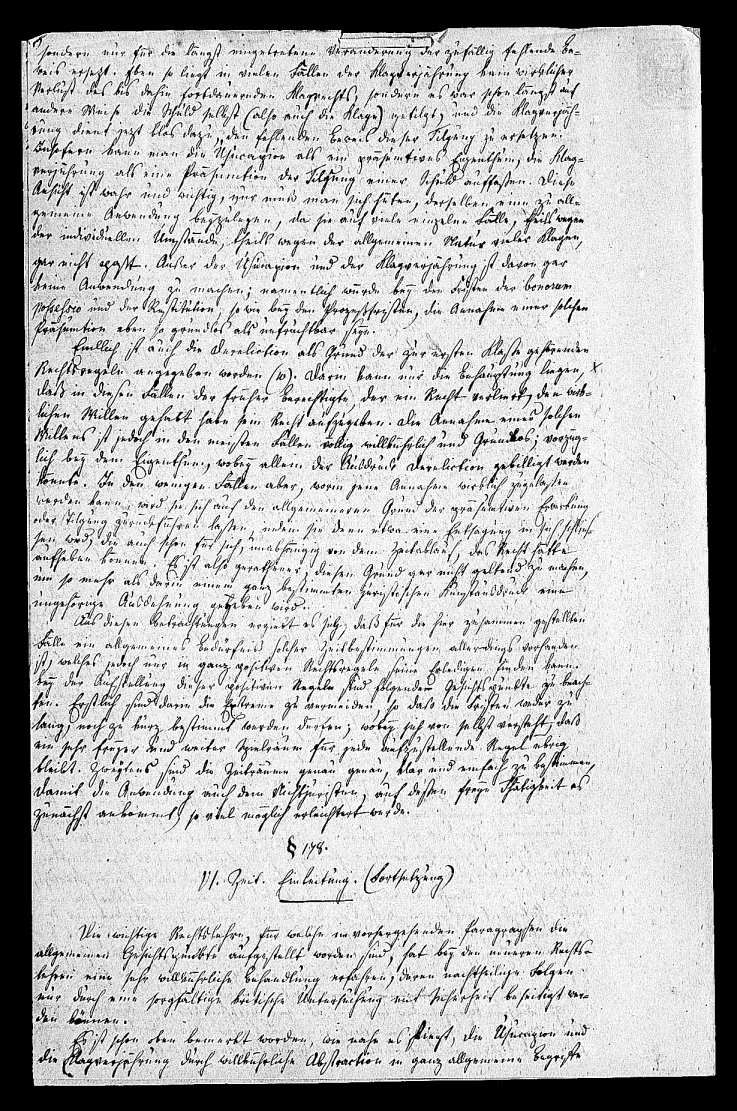 sondern nur für die längst eingetretene Veränderung der zufällig fehlende Be-
weis ersetzt. Eben so liegt in vielen Fällen der Klagverjährung kein wirklicher
Verlust des bis dahin fortdauernden Klagrechts, sondern es war schon längst auf
andere Weise die Schuld selbst (also auch die Klage) getilgt, und die Klagverjäh-
rung dient jetzt blos dazu, den fehlenden Beweis dieser Tilgung zu ersetzen.
Insofern kann man die Usucapion als ein präsumtives Eigenthum, die Klag-
verjährung als eine Präsumtion der Tilgung einer Schuld auffassen. Diese
Ansicht ist wahr und wichtig, nur muß man sich hüten, derselben eine zu all-
gemeine Anwendung beyzulegen, da sie auf viele einzelne Fälle, theils wegen
der individuellen Umstände, theils wegen der allgemeinen Natur vieler Klagen,
gar nicht paßt. Außer der Usucapion und der Klagverjährung ist davon gar
keine Anwendung zu machen; namentlich würde bey den Fristen der bonorum
possessio und der Restitution, so wie bey den Prozeßfristen, die Annahme einer solchen
Präsumtion eben so grundlos als unfruchtbar seyn.
Endlich ist auch die Dereliction als Grund der zur ersten Klasse gehörenden
Rechtsregeln angegeben worden (w). Darin kann nur die Behauptung liegen,
daß in diesen Fällen der früher Berechtigte, der ein Recht verliert, den wirk-
lichen Willen gehabt habe sein Recht aufzugeben. Die Annahme eines solchen
Willens ist jedoch in den meisten Fällen völlig willkührlich und grundlos; vorzüg-
lich bey dem Eigenthum, wobey allein der Ausdruck Dereliction gebilligt werden
könnte. In den wenigen Fällen aber, worin jene Annahme wirklich zugelassen
werden kann, wird sie sich auf den allgemeineren Grund der präsumtiven Erwerbung
oder Tilgung zurückführen lassen, indem sie dann etwa eine Entsagung in sich schlie-
ßen wird, die auch schon für sich, unabhängig von dem Zeitablauf, das Recht hätte
aufheben können. Es ist also gerathener, diesen Grund gar nicht geltend zu machen,
um so mehr als darin einem ganz bestimmten juristischen Kunstausdruck eine
ungehörige Ausdehnung gegeben wird.
Aus diesen Betrachtungen ergiebt es sich, daß für die hier zusammen gestellten
Fälle ein allgemeines Bedürfniß solcher Zeitbestimmungen allerdings vorhanden
ist, welches jedoch nur in ganz positiven Rechtsregeln seine Erledigung finden kann.
Bey der Aufstellung dieser positiven Regeln sind folgende Gesichtspunkte zu beach-
ten. Erstlich sind darin die Extreme zu vermeiden, so daß die Fristen weder zu
lang, noch zu kurz bestimmt werden dürfen; wobey sich von selbst versteht, daß
ein sehr freyer und weiter Spielraum für jede aufzustellende Regel übrig
bleibt. Zweytens sind die Zeiträume genau, klar und einfach zu bestimmen,
damit die Anwendung auch dem Nichtjuristen, auf dessen freye Thätigkeit es
zunächst ankommt, so viel möglich erleichtert werde.
§ 178.
VI. Zeit. Einleitung. (Fortsetzung)
Die wichtige Rechtslehre, für welche im vorhergehenden Paragraphen die
allgemeinen Gesichtspunkte aufgestellt worden sind, hat bey den neueren Rechts-
lehrern eine sehr willkührliche Behandlung erfahren, deren nachtheilige Folgen
nur durch eine sorgfältige kritische Untersuchung mit Sicherheit beseitigt wer-
den können.
Es ist schon oben bemerkt worden, wie nahe es liegt, die Usucapion und
die Klagverjährung durch willkührliche Abstraction in ganz allgemeine Begriffe